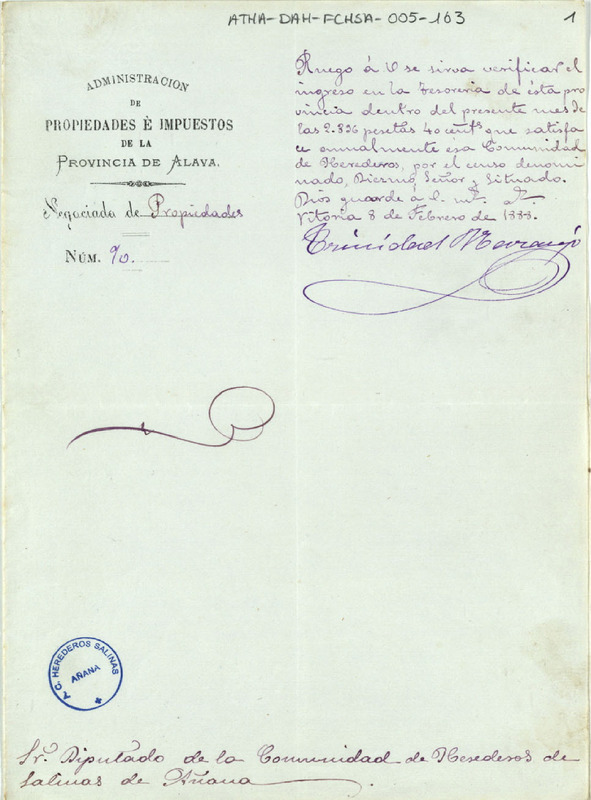 ATHA-DAH-FCHSA-005-163
1
ADMINISTRACION
DE
PROPIEDADES É IMPUESTOS
DE LA
PROVINCIA DE ALAVA.
Negociado de Propiedades
NÚM. 90.
Ruego á V se sirva verificar el
ingreso en la tesoreria de ésta pro
vincia dentro del presente mes de
las 2.826 pesetas 40 cénts que satisfa
ce anualmente esa Comunidad
de Herederos, por el censo denomi
nado, Diezmo, Señor y Situado.
Dios guarde á V. ms. as.
Vitoria 8 de Febrero de 1888.
Trinidad Naranjo
T. C. HEREDEROS SALINAS
AÑANA
Sr. Diputado de la Comunidad de Herederos de
Salinas de Añana